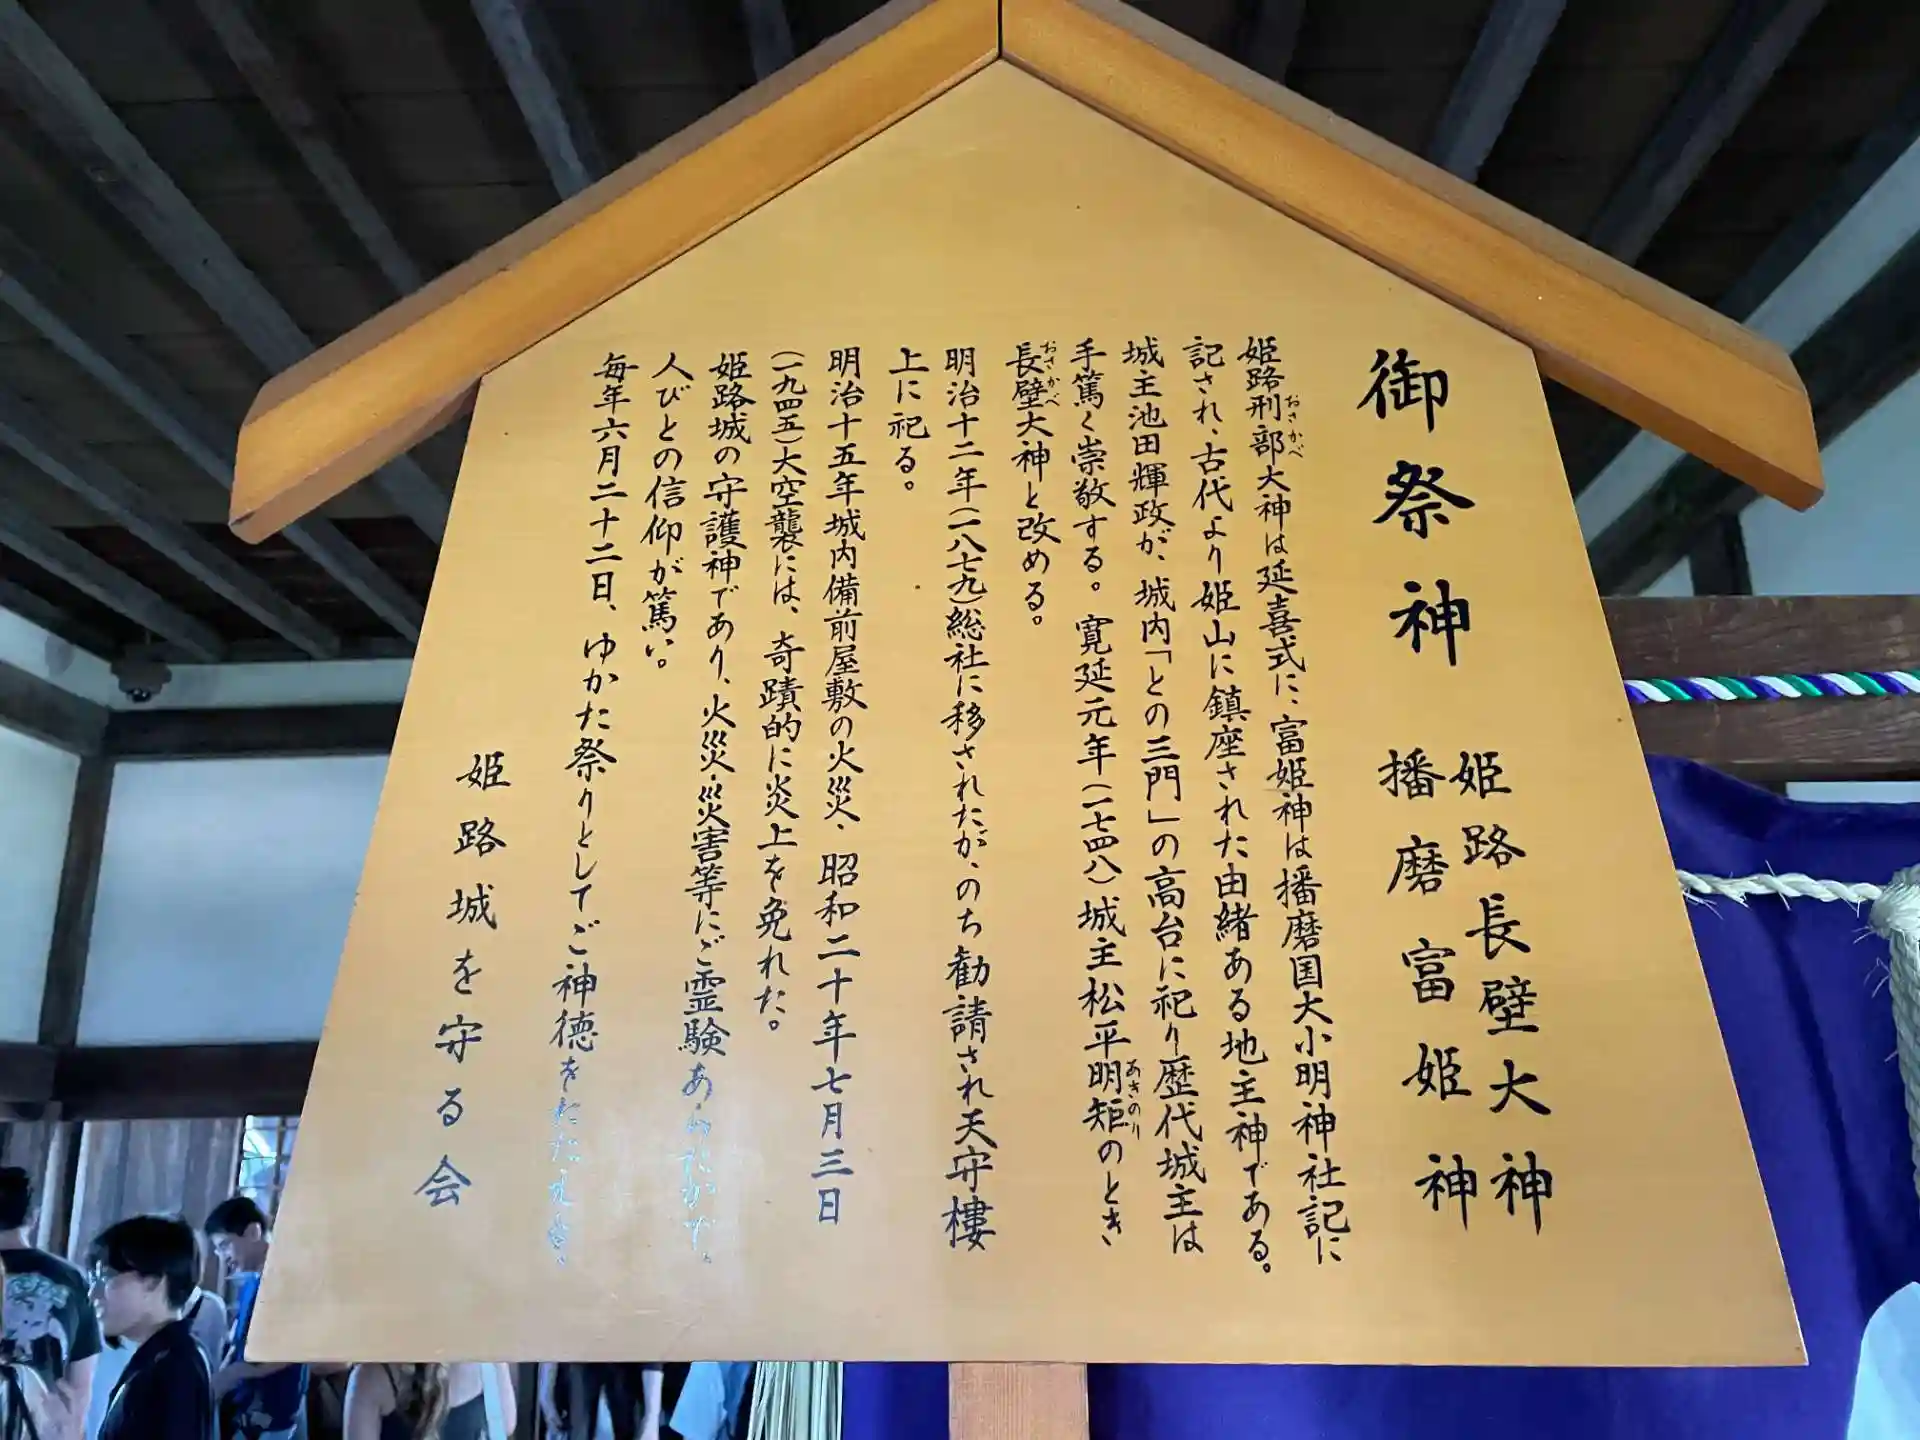 御祭神
姫路長壁大神
播磨富姫神
姫路刑部大神は延喜式に、富姫神は播磨国大小明神社記に
おさかべ
記され、古代より姫山に鎮座された由緒ある地主神である。
城主池田輝政が、城内「との三門」の高台に祀り歴代城主は
手篤く崇敬する。寛延元年(一七四八)城主松平明矩のとき
あきのり
長壁大神と改める。
おさかべ
明治十二年(一八七九)総社に移されたが、のち勧請され天守樓
上に祀る。
明治十五年城内備前屋敷の火災、昭和二十年七月三日
(一九四五)大空襲には、奇蹟的に炎上を免れた。
姫路城の守護神であり、火災・災害等にご霊験あらたかで、
人びとの信仰が篤い。
毎年六月二十二日、ゆかた祭りとしてご神徳をたたえる、
姫路城を守る会